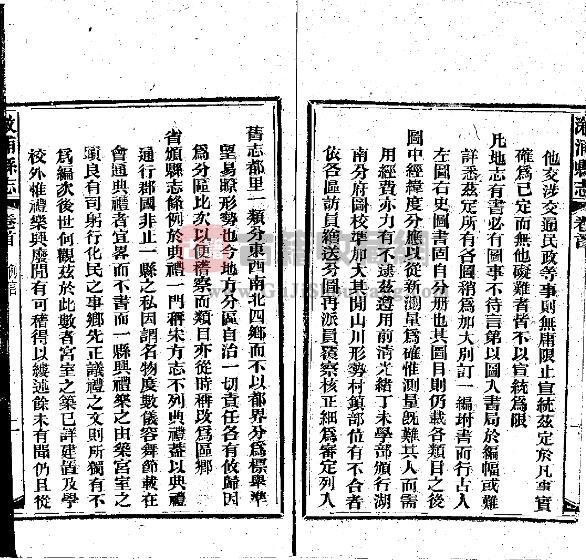 漵浦縣志
卷首
他交涉交通民政等事則無庸限止宣統茲定於凡事實
確爲已定而無他礙難者皆不以宣統爲限
凡地志有書必有圖事不待言第以圖入書局於編幅或難
詳悉茲定所有各圖稍爲加大別訂一編坿書而行古人
左圖右史圖書固自分册也其圖目則仍載各類目之後
圖中經緯度分應以從新測量爲確惟測量旣難其人而需
用經費亦力有不逮茲遵用前清光緒丁未學部頒行湖
南分府圖校準加大其閒山川形勢村鎭部位有不合者
依各區訪員繪送分圖再派員覆察核正細爲審定列入
舊志都里一類分東西南北四鄉而不以都界分爲標舉準
望易瞭形勢也今地方分區自治一切責任各有攸歸因
爲分區比次以便稽察而類目亦從時稱改爲區鄉
省頒縣志條例於典禮一門稱宋方志不列典禮蓋以典禮
通行郡國非止一縣之私因謂名物度數儀容舞節載在
會通典禮者宜畧而不書而一縣興禮樂之由築宮室之
頭良有司躬行化民之事鄉先正議禮之文則所獨有不
爲編次後世何觀茲於此數者宮室之築已詳建置及學
校外惟禮樂興廢閒有可稽得以縷述餘未有聞仍且從
漵浦縣志
卷首
例言
一